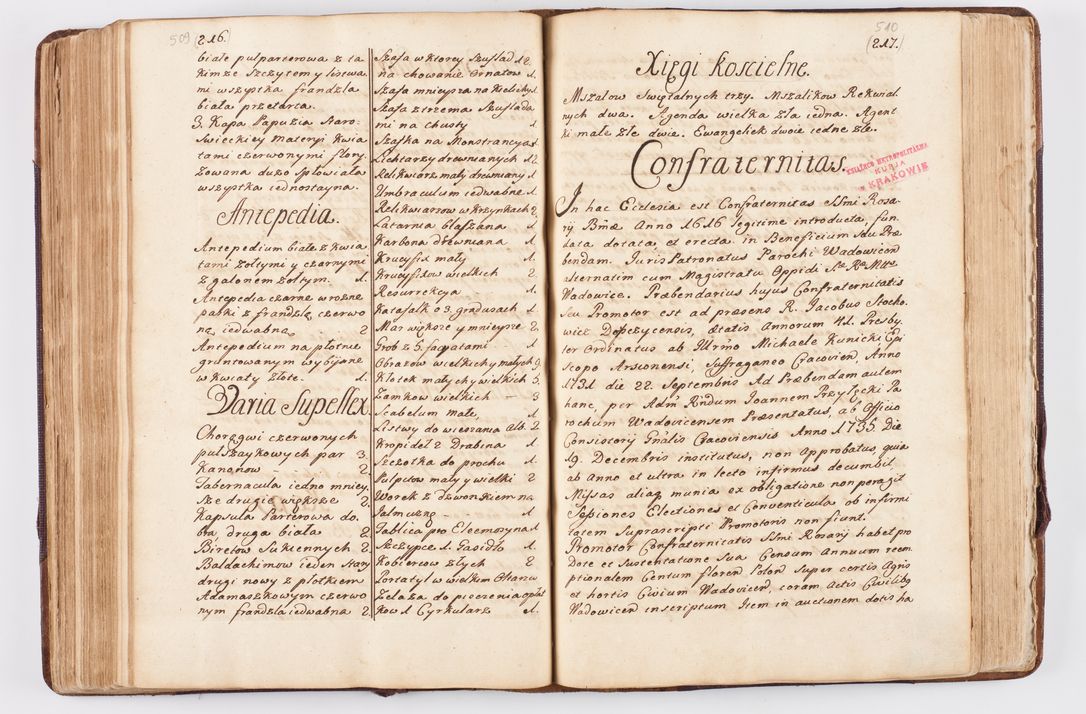 509 (216.
białe pulparterowa z ta
kimze szczytem y listwa
mi wszystka frandzla
biała przetarta.
3. Kapa Papuzia Staro-
swieckiey materyi kwia
tami czerwonymi flory
zowana duzo spłowiała
wszystka iednostayna.
Antepedia.
Antepedium białe z kwia
tami zołtymi y czarnymi
z galonem zołtym. 1.
Antepedia czarne w rozne
pabki z frandzlę czerwo
ną iedwabną 2
Antepedium na płotnie
gruntowanym wybijane
w kwiaty złote. 1.
Varia Supellex.
Choręgwi czerwonych
pulszaykowych par 3.
Kanonow 2
Tabernacula iedno mniey
sze drugie większe 2.
Kapsula Parterowa do-
bra, druga biała 2.
Biretow Sukiennych 2
Baldachimow ieden stary
drugi nowy z płotkiem
Adamaszkowym czerwo
nym frandzla iedwabna 2.
Szafa w ktorey Szuflad 12
na chowanie Ornatow 1.
Szafa mnieysza na Kielichy 1
Szafa z trzema Szuflada
mi na chusty 1.
Szafka na Monstrancyą 1
Lichtarzy drewnianych 12
Relikwiorz mały drewniany 1
Umbraculum iedwabne 1.
Relikwiarzow w krzynkach 2
Latarnia blaszana 1
Karbona drewniana 1.
Krucyfix mały 1
Krucyfixow wielkich 2.
Resurrekcya 1
Katafalk o 3. gradusach 1
Mar większe y mnieysze 2
Grob z 5. facyatami 1
Obrazow wielkich y małych 9.
Kłotek małych y wielkich 5.
Zamkow wielkich 3
Scabelum małe 1
Listwy do wieszania Alb. 2
Kropideł 2 Drabina 1.
Szczotka do prochu 1.
Pulpitow mały y wielki 2
Worek z Dzwonkiem na
Jałmuznę 1
Tablica pro Eleemosyna 1
Szczypce 1. Gasidło 1
Kobiercow złych 2
Portatyl w wielkim Ołtarzu
Zelaza do pieczenia opłat
kow 1 Cyrkularz 1.
510
(217.)
Xięgi koscielne.
Mszałow Swiętalnych trzy. Mszalikow Rekwial
nych dwa. Agenda wielka zła iedna. Agent
ki małe złe dwie. Ewangeliek dwoie iedne złe.
Confraternitas.
KSIĄŻĘCO METROPOLITALNA
KURJA
w KRAKOWIE
In hac Ecclesia est Confraternitas SSmi Rosa-
rÿ Bmæ Anno 1616 legitime introducta, fun
data dotata, et erecta in Beneficium seu Præ
bendam. Juris Patronatus Parochi Wadovicen
alternatim cum Magistratu Oppidi Sæ Ræ Mttis
Wadowice. Præbendarius hujus Confraternitatis
seu Promotor est ad præsens R. Jacobus Stocho
wicz Dobczycensis, Ætatis Annorum 41. Presby
ter Ordinatus ab Illrmo Michaele Kunicki Epi
scopo Arsionensi, Suffraganeo Cracovien, Anno
1731 die 22. Septembris Ad Præbendam autem
hanc, per Adm Rndum Ioannem Przyłęcki Pa
rochum Wadovicensem Præsentatus, ab Officio
Consistorÿ Gnalis Cracoviensis Anno 1735 Die
19. Decembris institutus, non Approbatus, quia
ab Anno et ultra in lecto infirmus decumbit,
Missas aliaq munia ex obligatione non peragit
Sessiones Electiones et Conventicula ob infirmi
tatem Suprascripti Promotoris non fiunt.
Promotor Confraternitatis SSmi Rosarÿ habet pro
Dote et Sustentatione Sua Censum Annuum reem
ptionalem Centum floren Polon super certis Agris
et hortis Civium Wadovicen, coram Actis Civilibq
Wadovicen inscriptum Item in auctionem dotis ha